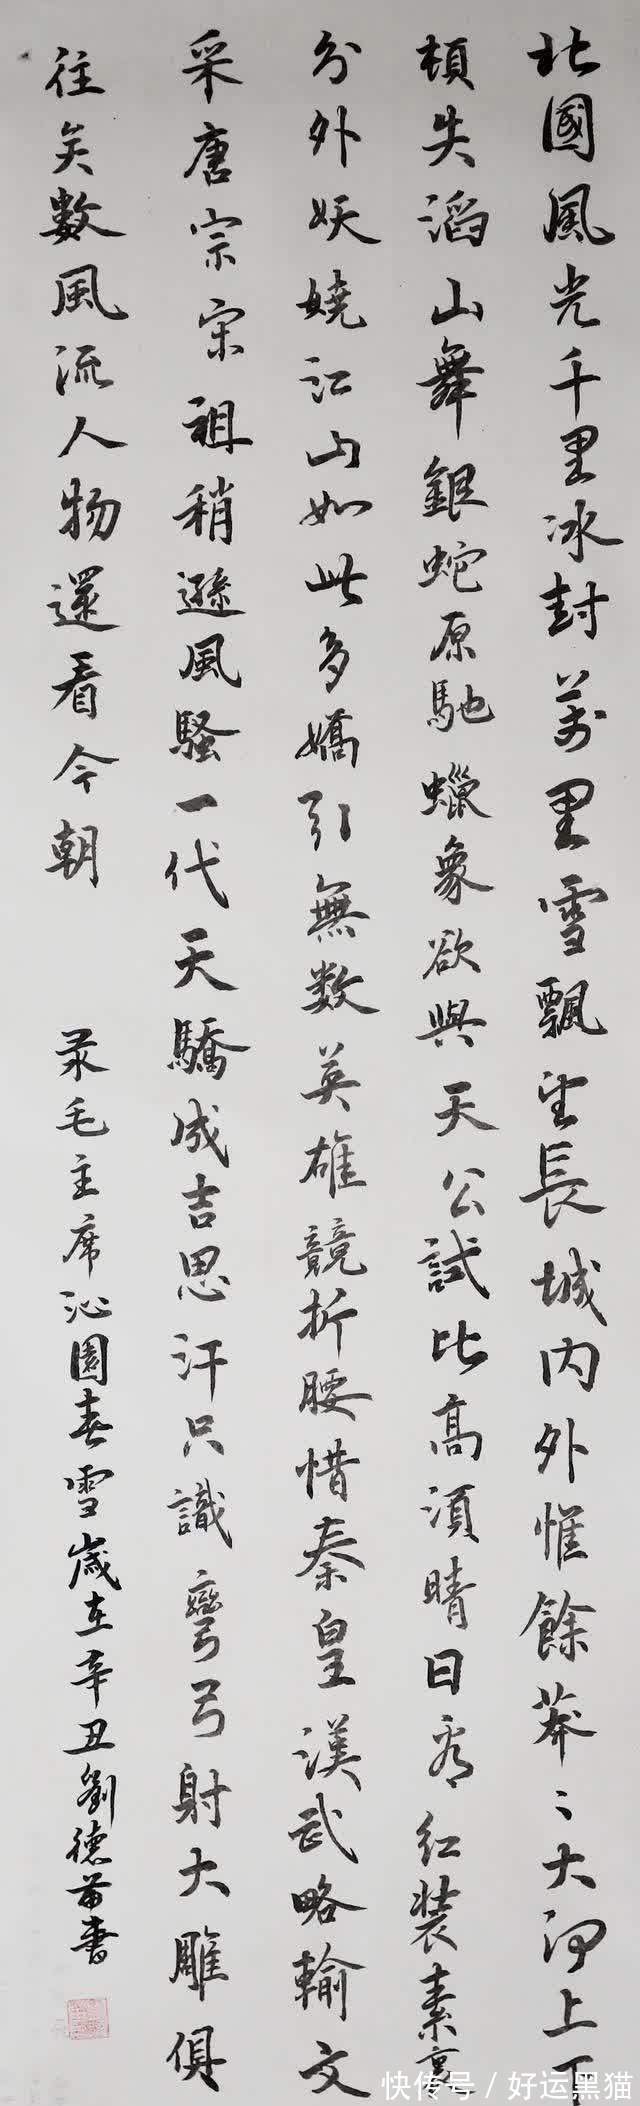 北國風光千里冰封萬里雪飄望長城內外惟餘莽〻大河上下
頓失滔山舞銀蛇原馳蠟象欲與天公試比高須晴日看红裝素裹
分外妖嬈江山如此多嬌引無数英雄競折腰惜秦皇漢武略輸文
采唐宗宋祖稍遜風騷一代天驕成吉思汗只識彎弓射大雕俱
往矣數風流人物還看今朝
录毛主席沁園春雪歲在辛丑劉德苗書
快传号/好运黑猫